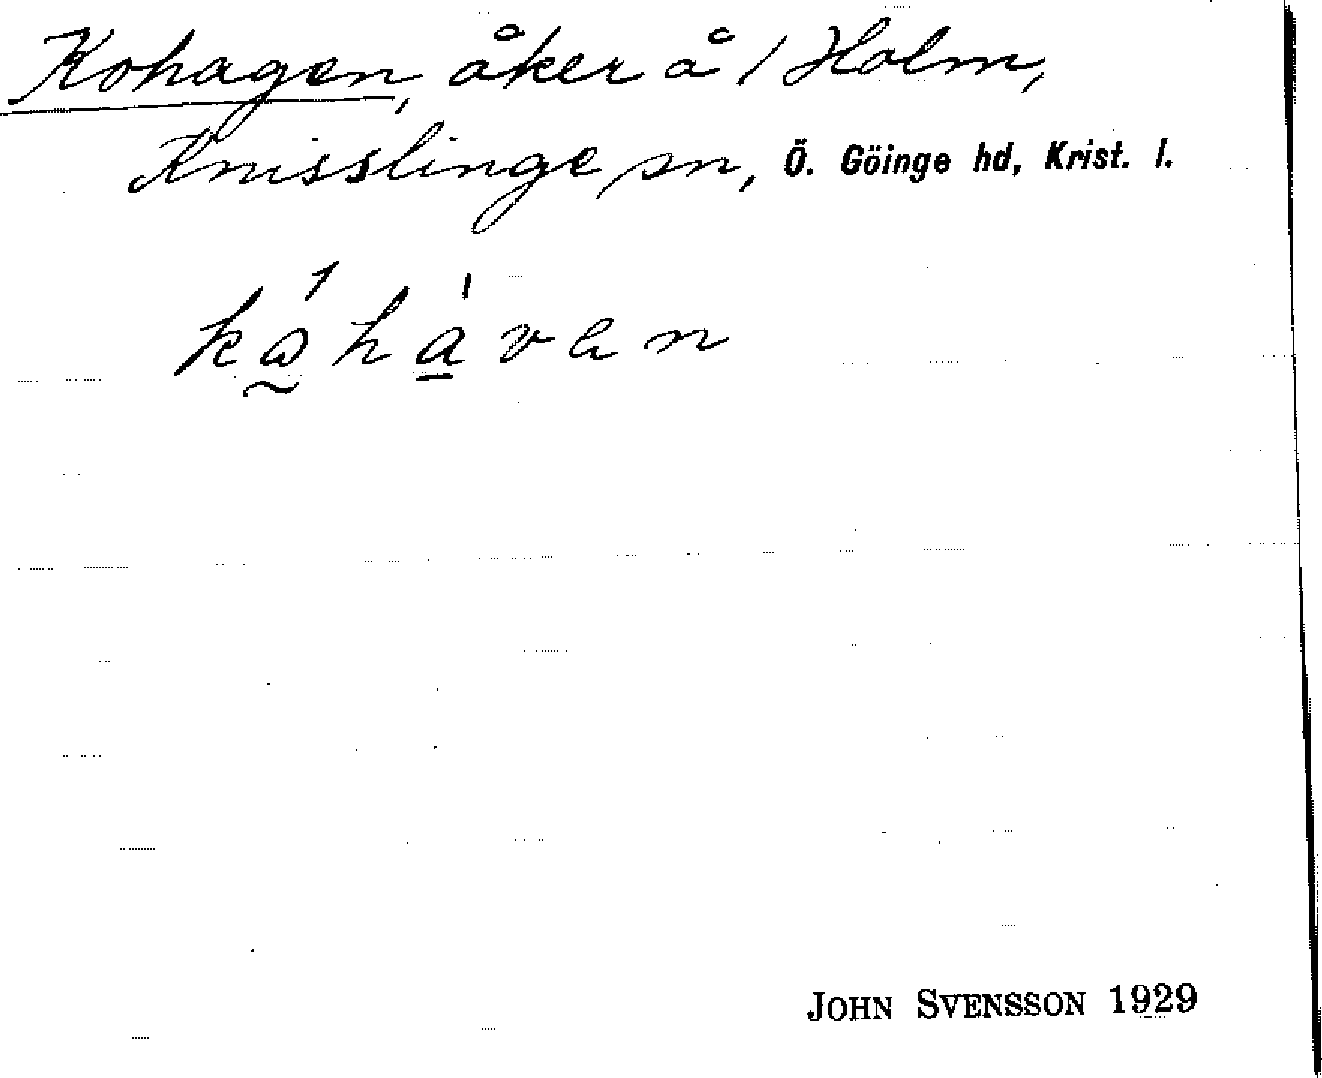 Kohagen, åker å 1 Holm,
Knisslinge sn, Ö. Göinge hd, Krist. l.
JOHN SVENSSON 1929